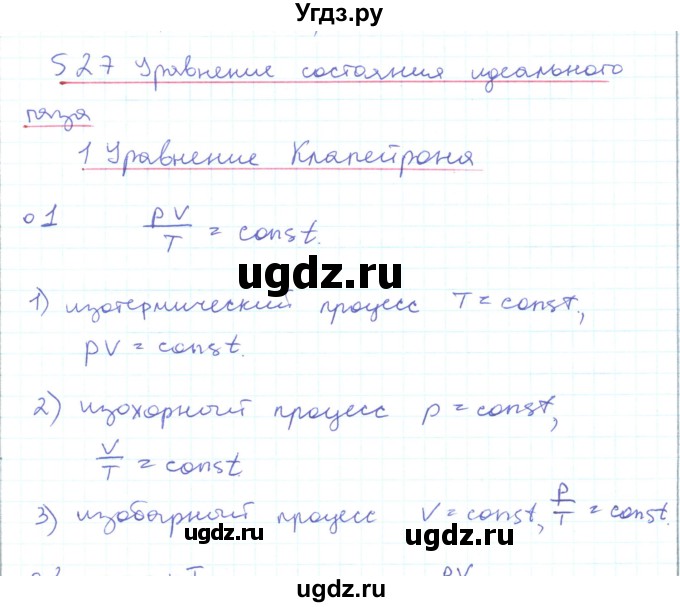 Угдз.ру
§27 Уравнение состояния идеального
газа
1 Уравнение Клапейрона
o1 pV/T = const.
ugdz.ru
1) изотермический процесс T = const,
pV = const.
2) изохорный процесс p = const,
V/T = const
3) изобарный процесс V = const, p/T = const.
ugdz.ru
ugdz.ru